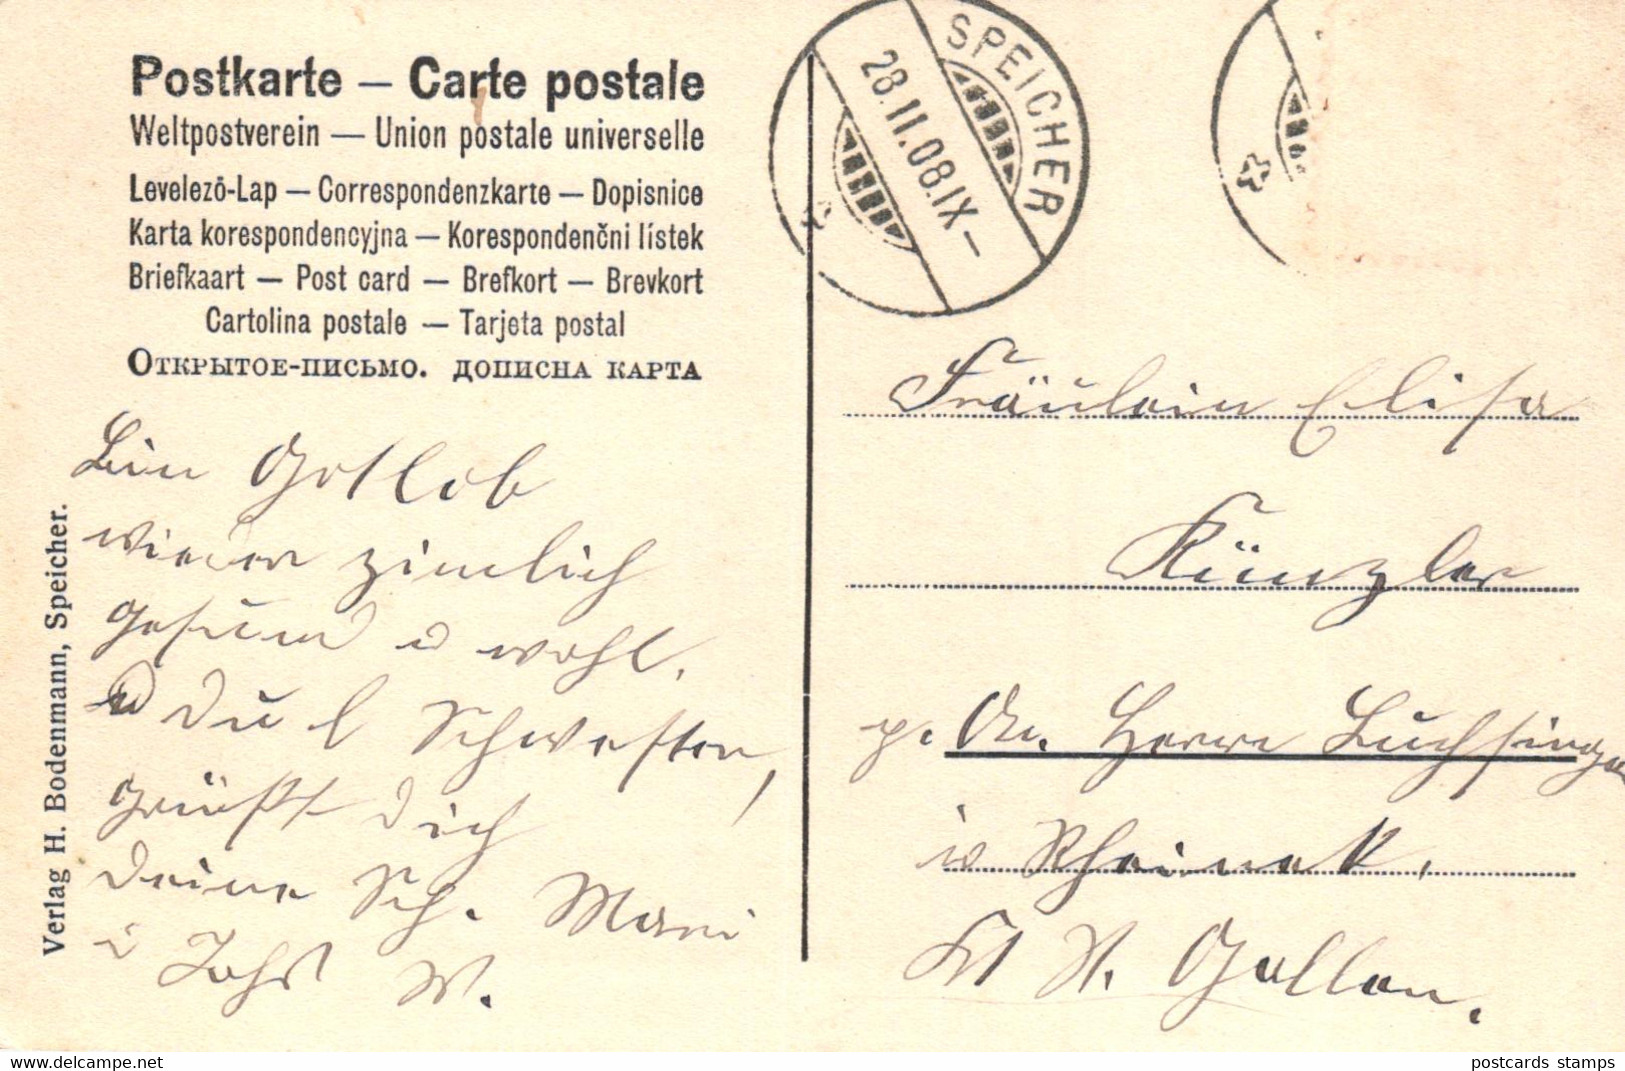 Postkarte — Carte postale
Weltpostverein — Union postale universelle
Levelező-Lap — Correspondenzkarte — Dopisnice
Karta korespondencyjna — Korespondenční lístek
Briefkaart — Post card — Brefkort — Brevkort
Cartolina postale — Tarjeta postal
Открытое-письмо. дописна карта
SPEICHER
28.II.08.IX-
Verlag H. Bodenmann, Speicher.
Bin Gottlob
wieder zimlich
gesund u wohl.
Du l Schwester,
grüßt dich
deine Sch. Mari
Johs W.
Fräulein Elisa
Künzler
p. Adr. Herrn Luchsinger
in Rheinek,
Kt St. Gallen.
www.delcampe.net
postcards stamps